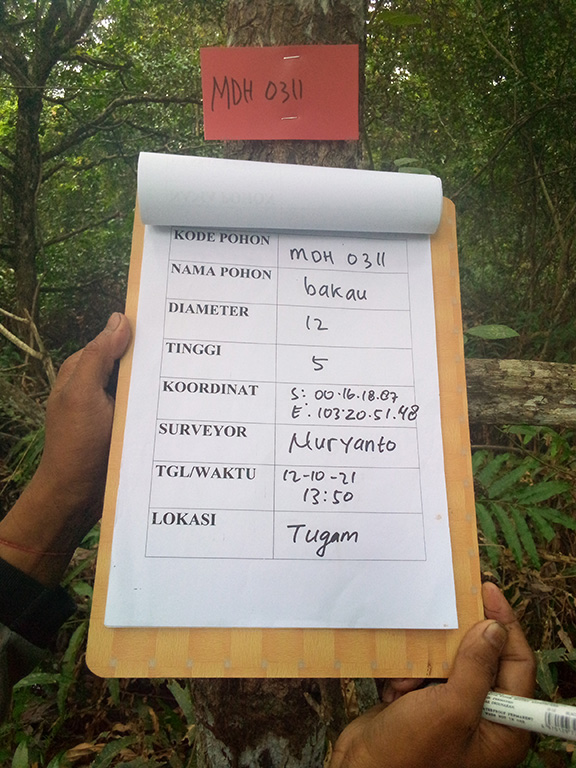 MDH 0311
KODE POHON MDH 0311
NAMA POHON bakau
DIAMETER 12
TINGGI 5
KOORDINAT S: 00.16.18.87
E: 103.20.51.48
SURVEYOR Nuryanto
TGL/WAKTU 12-10-21
13:50
LOKASI Tugam